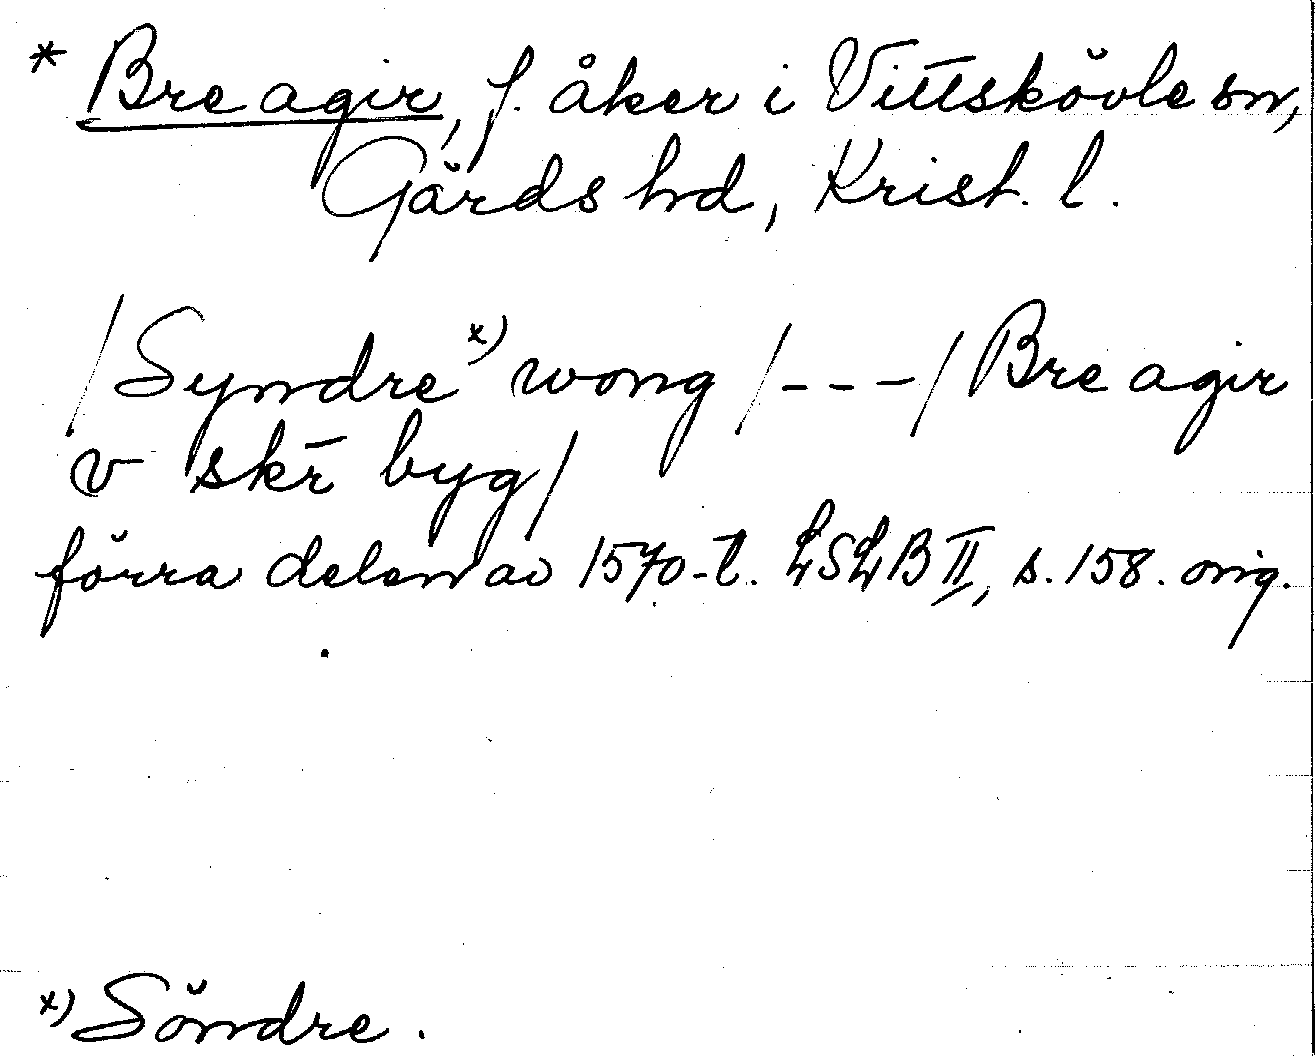 * Bre agir, f. åker i Vittskövle sn,
Gärds hd, Krist. l.
/Syndre x) wong /---/ Bre agir
v skr̄ byg/
förra delen av 1570-t. LSLB II, s. 158. orig.
x) Söndre.